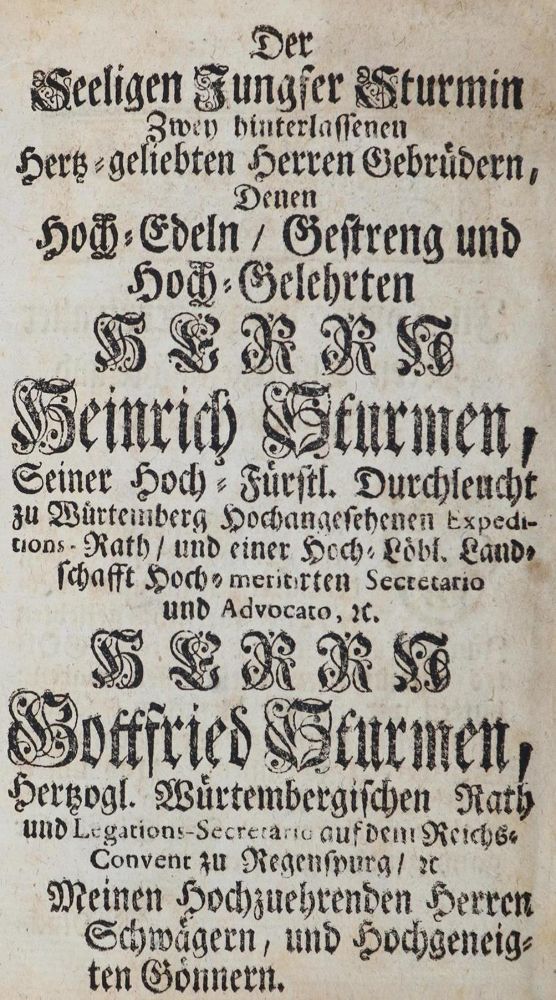 Der
Seeligen Jungfer Sturmin
Zwey hinterlassenen
Hertz-geliebten Herren Gebrüdern,
Denen
Hoch-Edeln / Gestreng und
Hoch-Gelehrten
HERRN
Heinrich Sturmen,
Seiner Hoch-Fürstl. Durchleucht
zu Würtemberg Hochangesehenen Expedi-
tions-Rath / und einer Hoch-Löbl. Land-
schafft Hoch-meritirten Secretario
und Advocato, ꝛc.
HERRN
Gottfried Sturmen,
Hertzogl. Würtembergischen Rath
und Legations-Secretario auf dem Reichs-
Convent zu Regenspurg / ꝛc
Meinen Hochzuehrenden Herren
Schwägern, und Hochgeneig-
ten Gönnern.